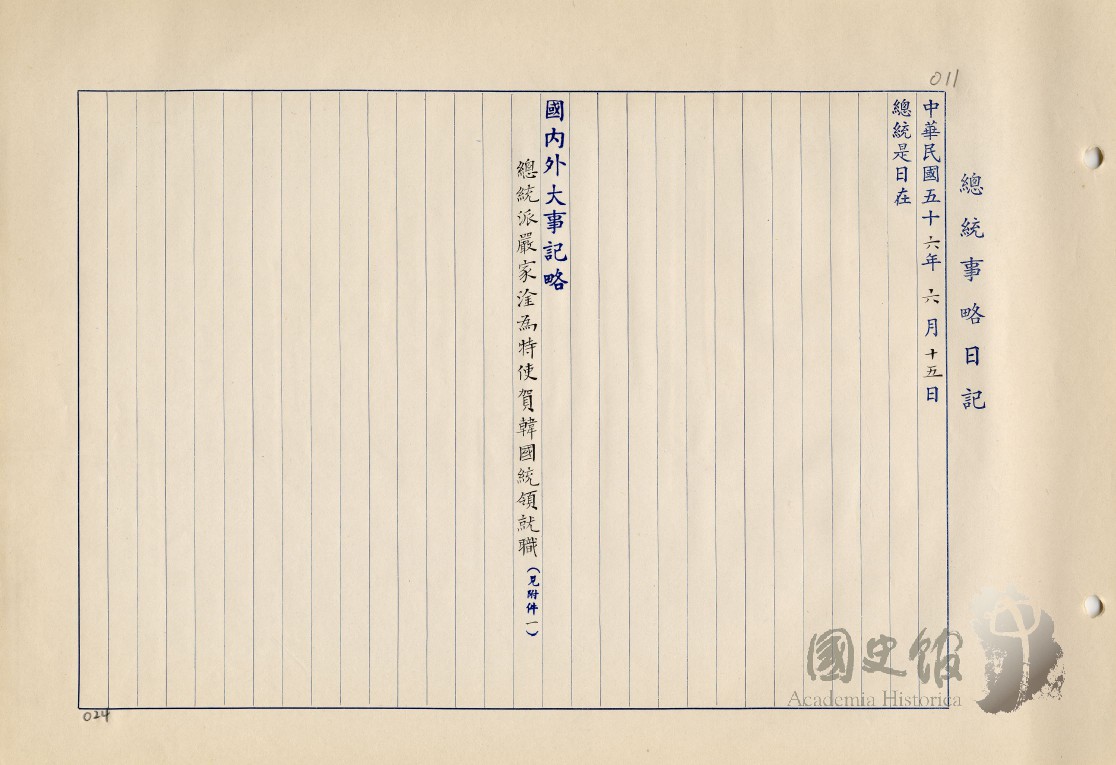 011
總統事略日記
中華民國五十六年六月十五日
總統是日在
國內外大事記略
總統派嚴家淦為特使賀韓國統領就職(見附件一)
024
國史館
Academia Historica